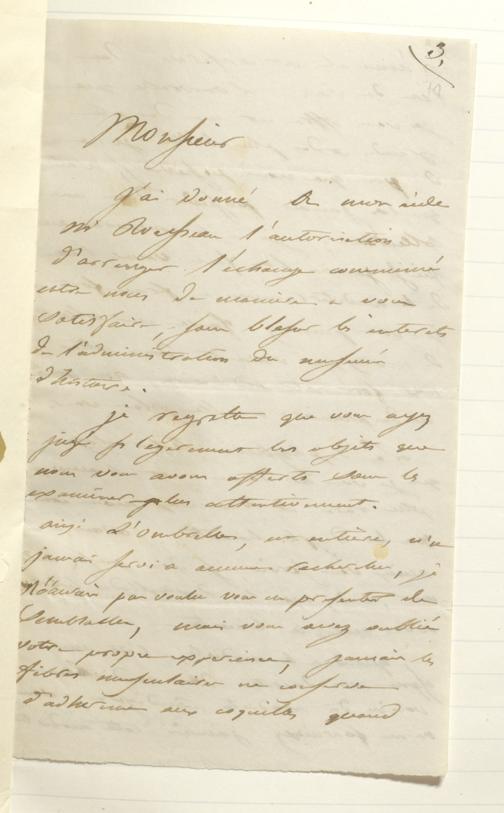 3,
Monsieur
j'ai donné à mon aide
mr Rousseau l'autorisation
d'arranger l'échange commencé
entre nous de manière a vous
satisfaire, sans blesser les interets
de l'administration du museum
d'histoire.
je regrette que vous ayez
jugé si legerement les objets que
nous vous avons offerts sans les
examiner plus attentivement.
ainsi L'ombrelle, est entière, n'a
jamais servi a aucune recherche, je
n'aurais pas voulu vous en presenter de
Semblable, mais vous avez oublié
votre propre experience, jamais les
fibres musculaires ne conserve
d'adherence aux coquilles quand